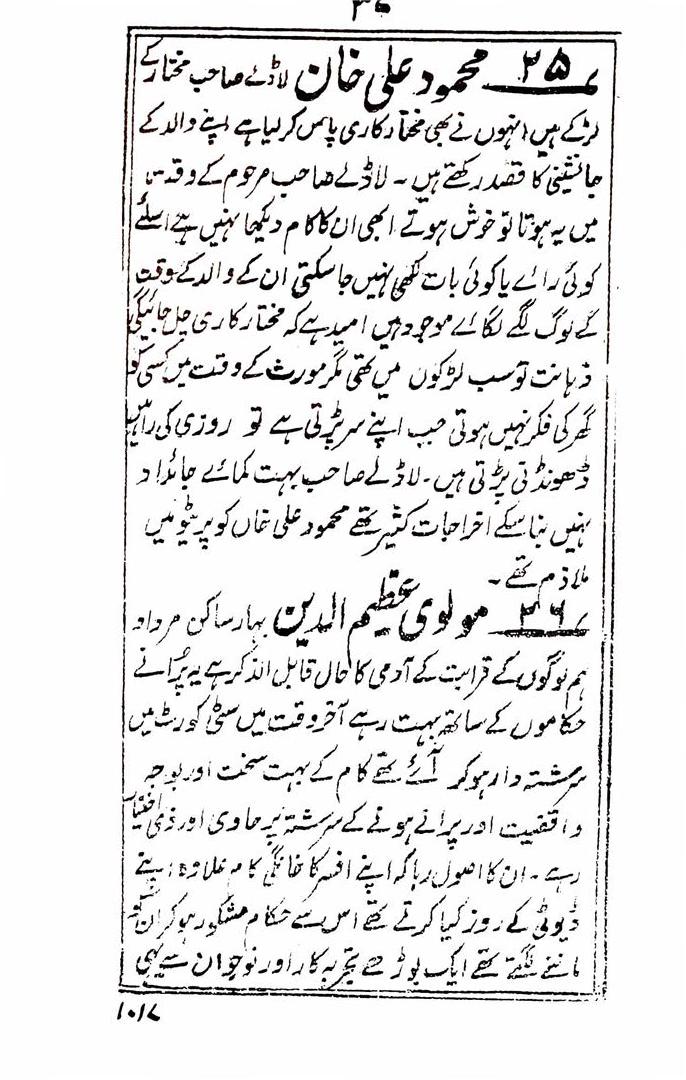 ۳۶
۲۵ محمود علی خان لاڈلے صاحب مختار کے
لڑکے ہیں انہوں نے بھی مختار کاری پاس کر لیا ہے اپنے والد کے
جانشینی کا قصد رکھتے ہیں ۔ لاڈلے صاحب مرحوم کے وقت
میں یہ ہوتا تو خوش ہوتے ابھی ان کا کام دیکھا نہیں ہے اسلئے
کوئی راے یا کوئی بات لکھی نہیں جا سکتی ان کے والد کے وقت
کے لوگ لگے لگاے موجود ہیں امید ہے کہ مختار کاری چل جائیگی
ذہانت تو سب لڑکوں میں تھی مگر مورث کے وقت میں کسی کو
گھر کی فکر نہیں ہوتی جب اپنے سر پڑتی ہے تو روزی کی راہیں
ڈھونڈنی پڑتی ہیں ۔ لاڈلے صاحب بہت کماے جائداد
نہیں بنا سکے اخراجات کثیر تھے محمود علی خاں کو پریٹیو میں
ملازم تھے ۔
۲۶ مولوی عظیم الدین بہار ساکن مرداد
ہم لوگوں کے قرابت کے آدمی کا حال قابل الذکر ہے یہ پُرانے
حکاموں کے ساتھ بہت رہے آخر وقت میں سٹی کورٹ میں
سرشتہ دار ہو کر آئے تھے کام کے بہت سخت اور بوجہ
واقفیت اور پرانے ہونے کے سرشتہ پر حاوی اور ذی اختیار
رہے ۔ ان کا اصول رہا کہ اپنے افسر کا خانگی کام علاوہ اپنے
ڈیوٹی کے روز کیا کرتے تھے اس سے حکام مشکور ہو کر ان کو
ماننے لگتے تھے ایک بوڑھے تجربہ کار اور نوجوان سے یہی
۱۰۱۷